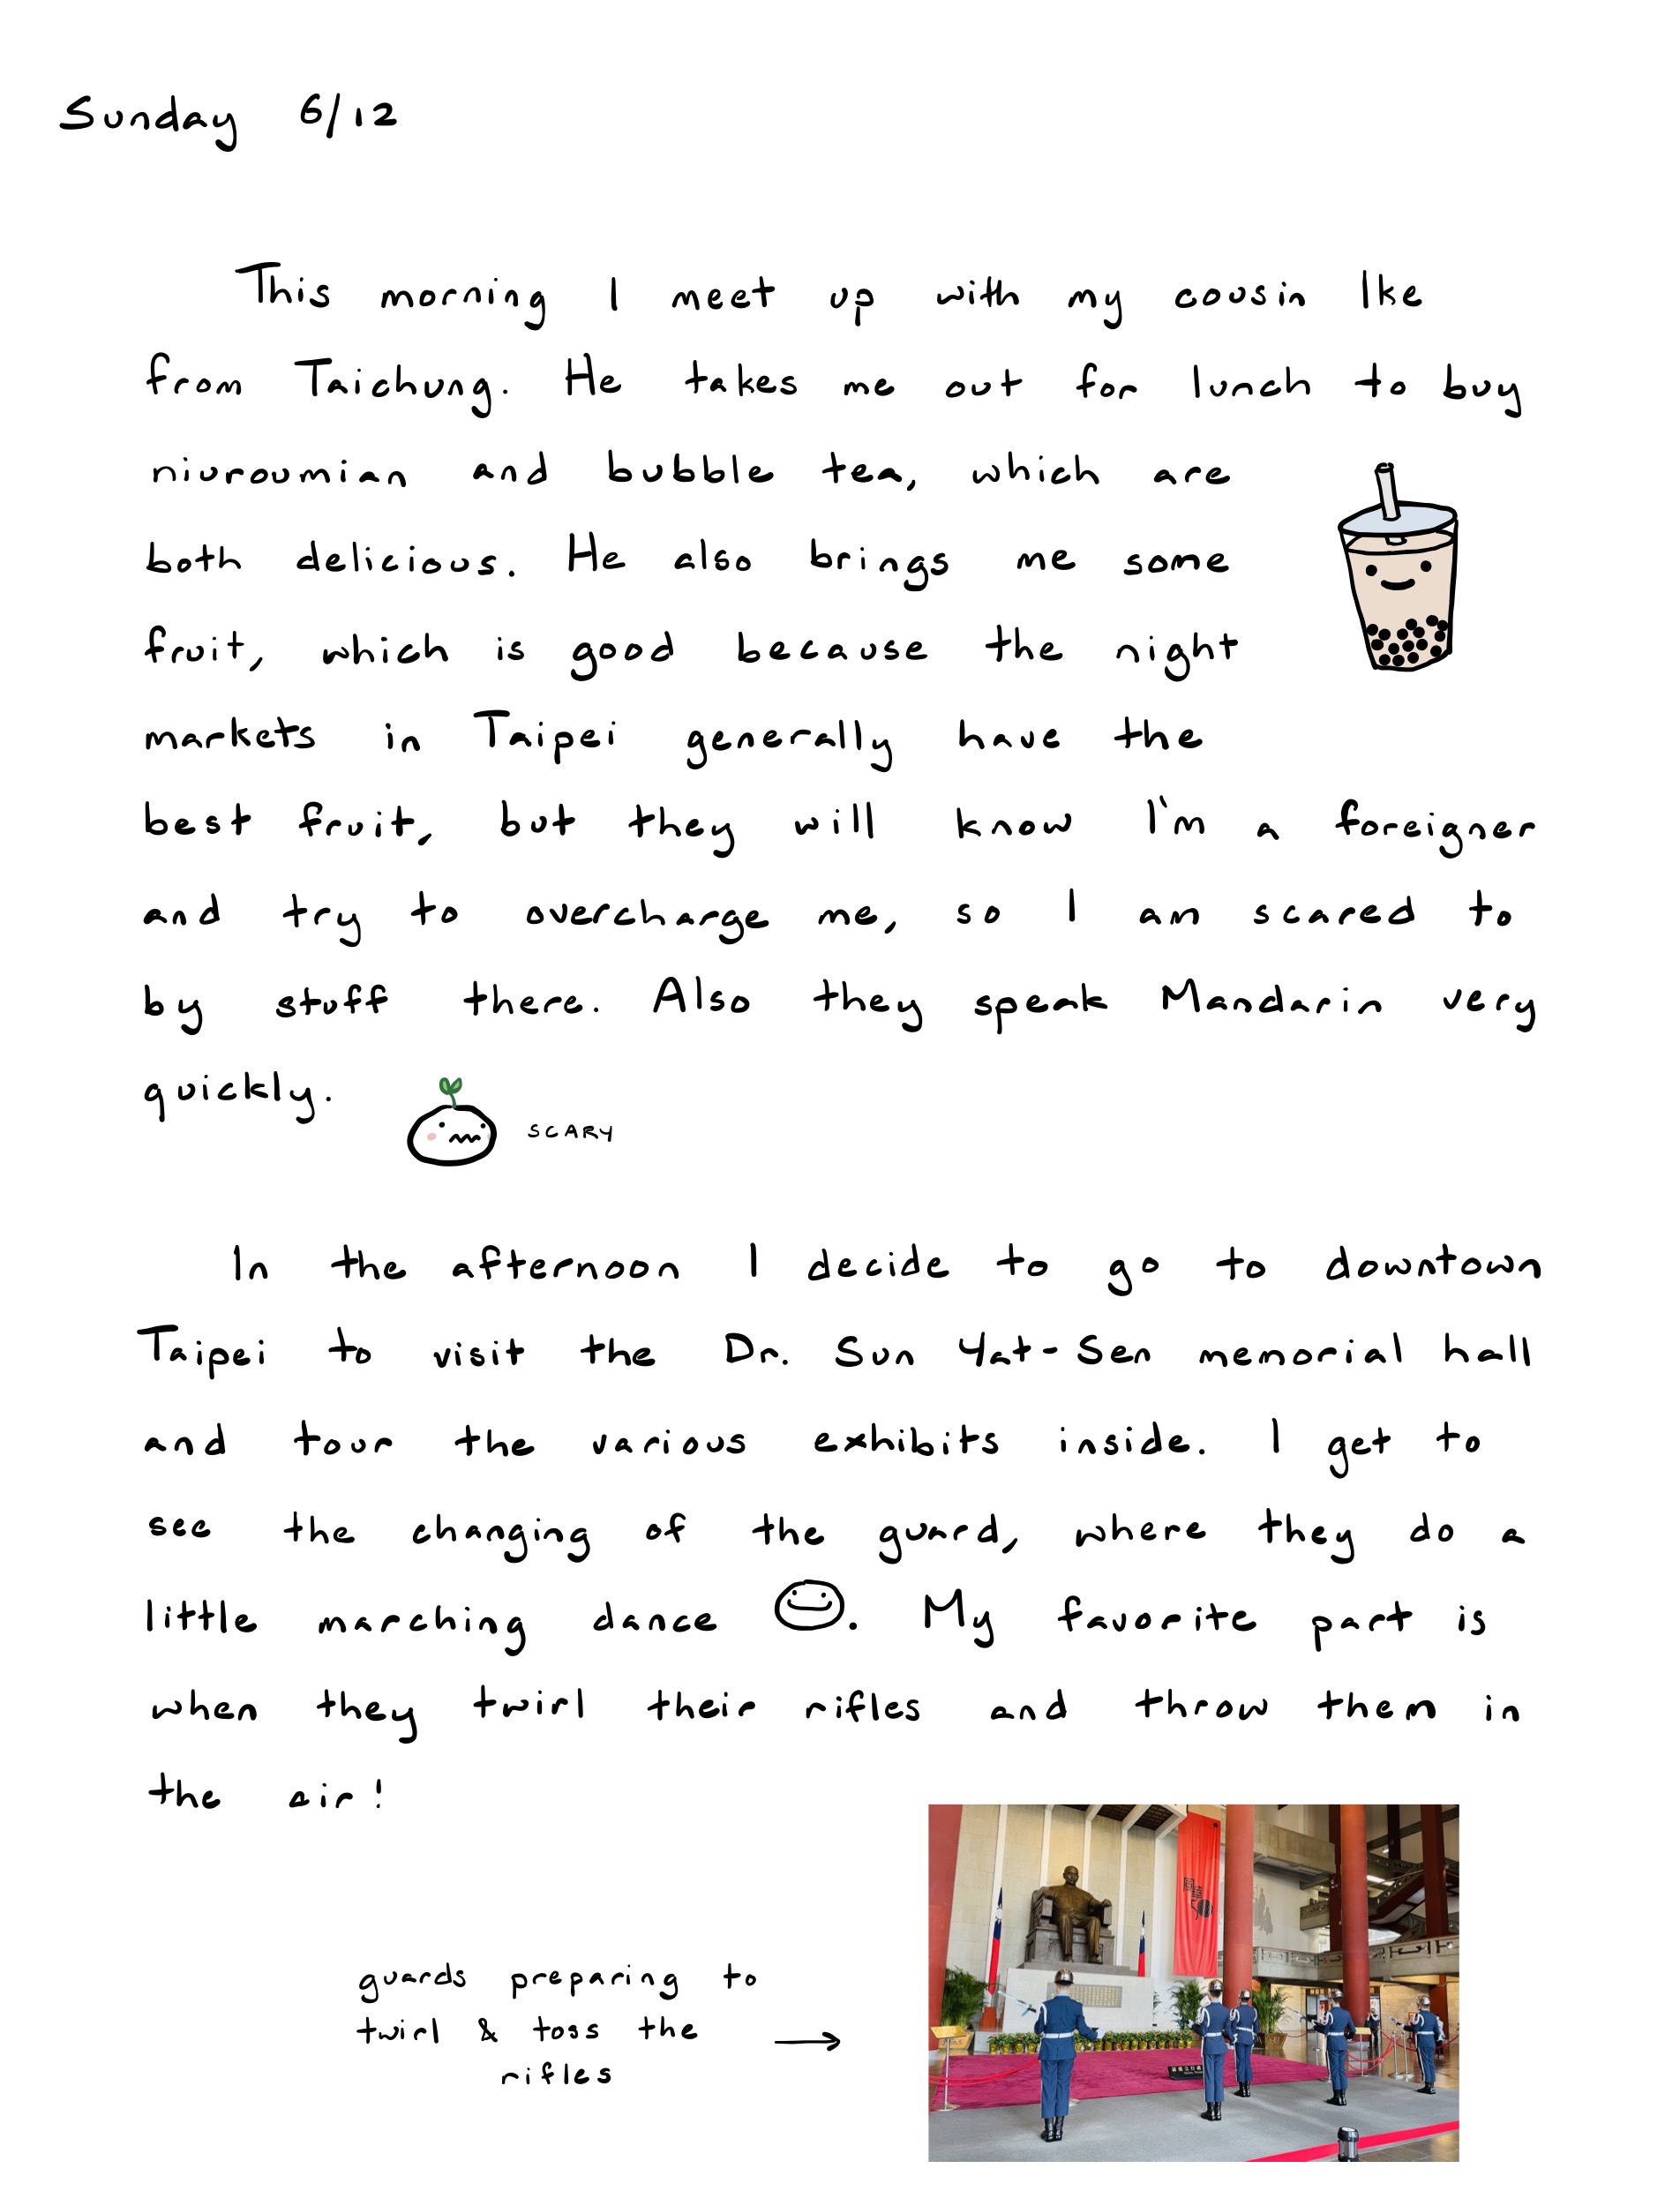 Sunday 6/12
This morning I meet up with my cousin Ike
from Taichung. He takes me out for lunch to buy
niuroumian and bubble tea, which are
both delicious. He also brings me some
fruit, which is good because the night
markets in Taipei generally have the
best fruit, but they will know I'm a foreigner
and try to overcharge me, so I am scared to
by stuff there. Also they speak Mandarin very
quickly.
SCARY
In the afternoon I decide to go to downtown
Taipei to visit the Dr. Sun Yat-Sen memorial hall
and tour the various exhibits inside. I get to
see the changing of the guard, where they do a
little marching dance . My favorite part is
when they twirl their rifles and throw them in
the air!
guards preparing to
twirl & toss the
rifles